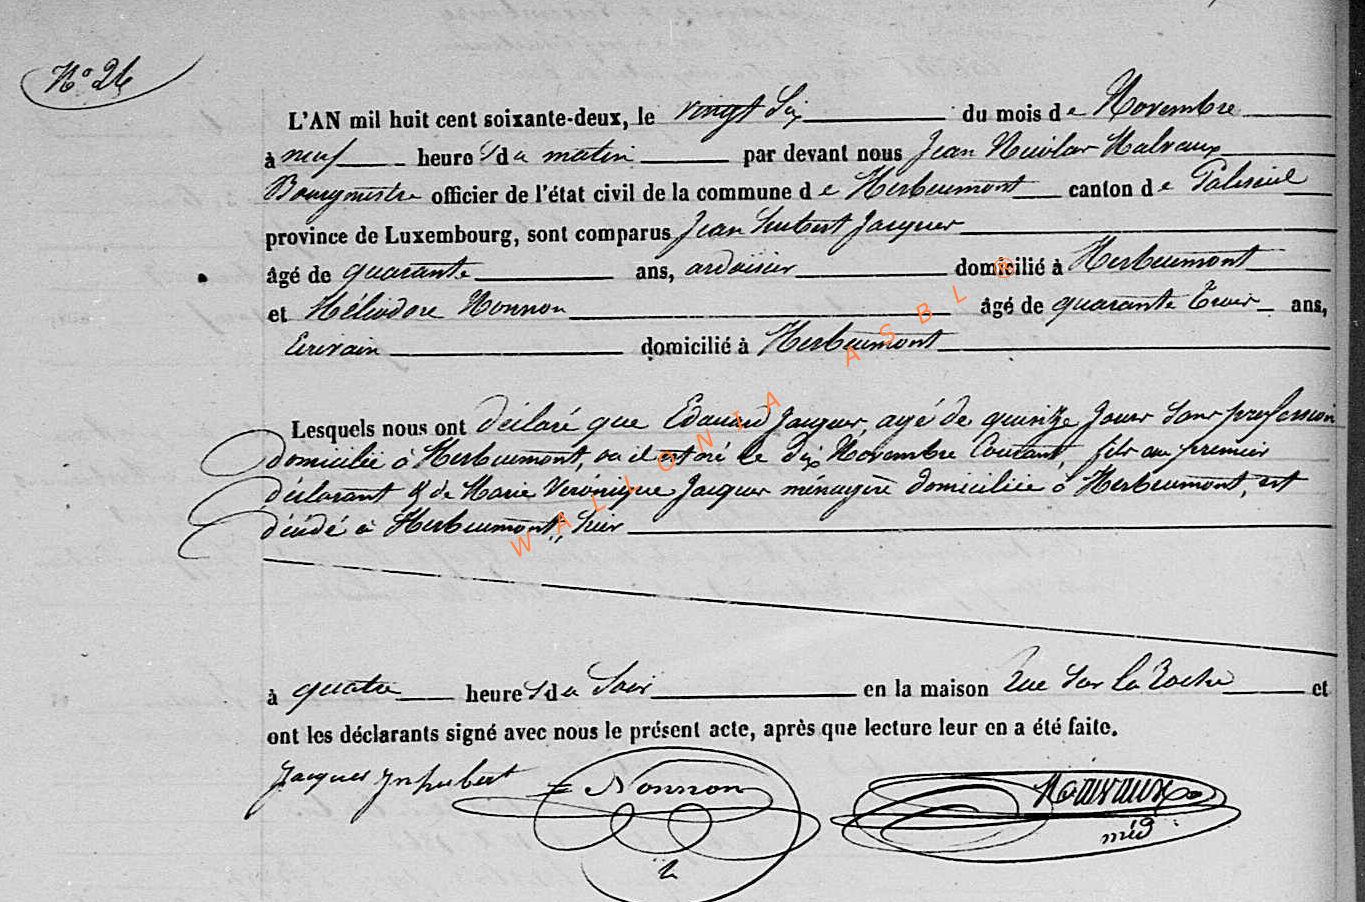 N° 26
L'AN mil huit cent soixante-deux, le vingt Six du mois de Novembre
à neuf heures du matin par devant nous Jean Nicolas Malvaux
Bourgmestre officier de l'état civil de la commune de Herbeumont canton de Paliseul
province de Luxembourg, sont comparus Jean hubert Jacques
âgé de quarante ans, ardoisier domicilié à Herbeumont
et Héliodore Nonnon âgé de quarante Trois ans,
Ecrivain domicilié à Herbeumont
Lesquels nous ont déclaré que Edouard Jacques, agé de quinze Jours Sans profession
domicilié à Herbeumont, ou il est né le dix Novembre Courant, fils au premier
déclarant & de Marie Véronique Jacques ménagère domiciliée à Herbeumont, est
décédé à Herbeumont, hier
à quatre heures du Soir en la maison Rue Sur la Roche et
ont les déclarants signé avec nous le présent acte, après que lecture leur en a été faite.
Jacques Jn hubert Nonnon Malvaux
WALLONIA ASBL ©